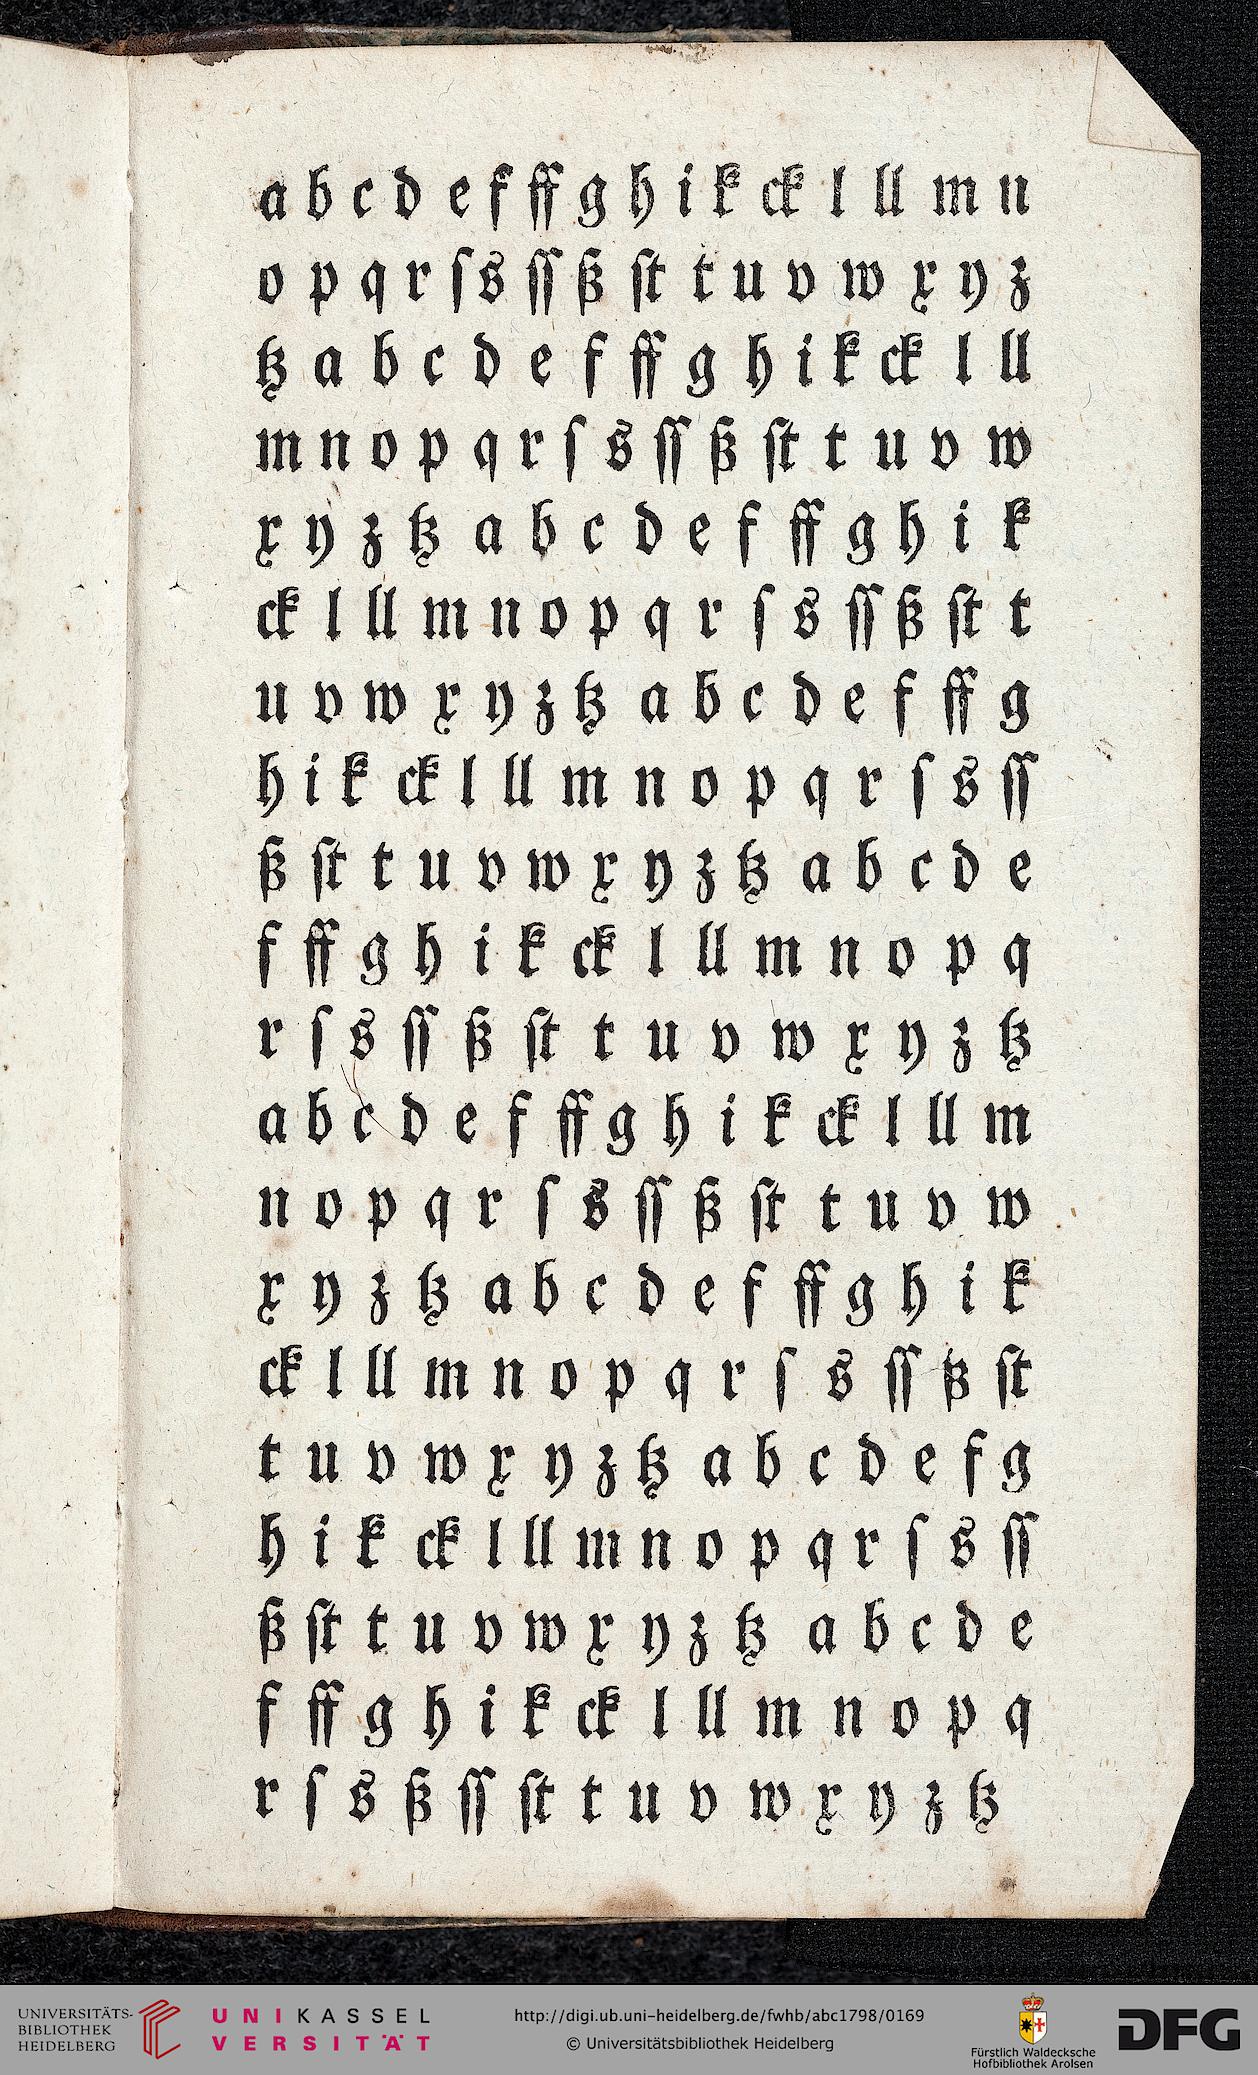 a b c d e f ff g h i k ck l ll m n
o p q r ſ s ſſ ß ſt t u v w x y z
tz a b c d e f ff g h i k ck l ll
m n o p q r ſ s ſſ ß ſt t u v w
x y z tz a b c d e f ff g h i k
ck l ll m n o p q r ſ s ſſ ß ſt t
u v w x y z tz a b c d e f ff g
h i k ck l ll m n o p q r ſ s ſſ
ß ſt t u v w x y z tz a b c d e
f ff g h i k ck l ll m n o p q
r ſ s ſſ ß ſt t u v w x y z tz
a b c d e f ff g h i k ck l ll m
n o p q r ſ s ſſ ß ſt t u v w
x y z tz a b c d e f ff g h i k
ck l ll m n o p q r ſ s ſſ ß ſt
t u v w x y z tz a b c d e f g
h i k ck l ll m n o p q r ſ s ſſ
ß ſt t u v w x y z tz a b c d e
f ff g h i k ck l ll m n o p q
r ſ s ß ſſ ſt t u v w x y z tz
UNIVERSITÄTS-
BIBLIOTHEK
HEIDELBERG
UNIKASSEL
VERSITÄT
http://digi.ub.uni-heidelberg.de/fwhb/abc1798/0169
© Universitätsbibliothek Heidelberg
Fürstlich Waldecksche
Hofbibliothek Arolsen
DFG